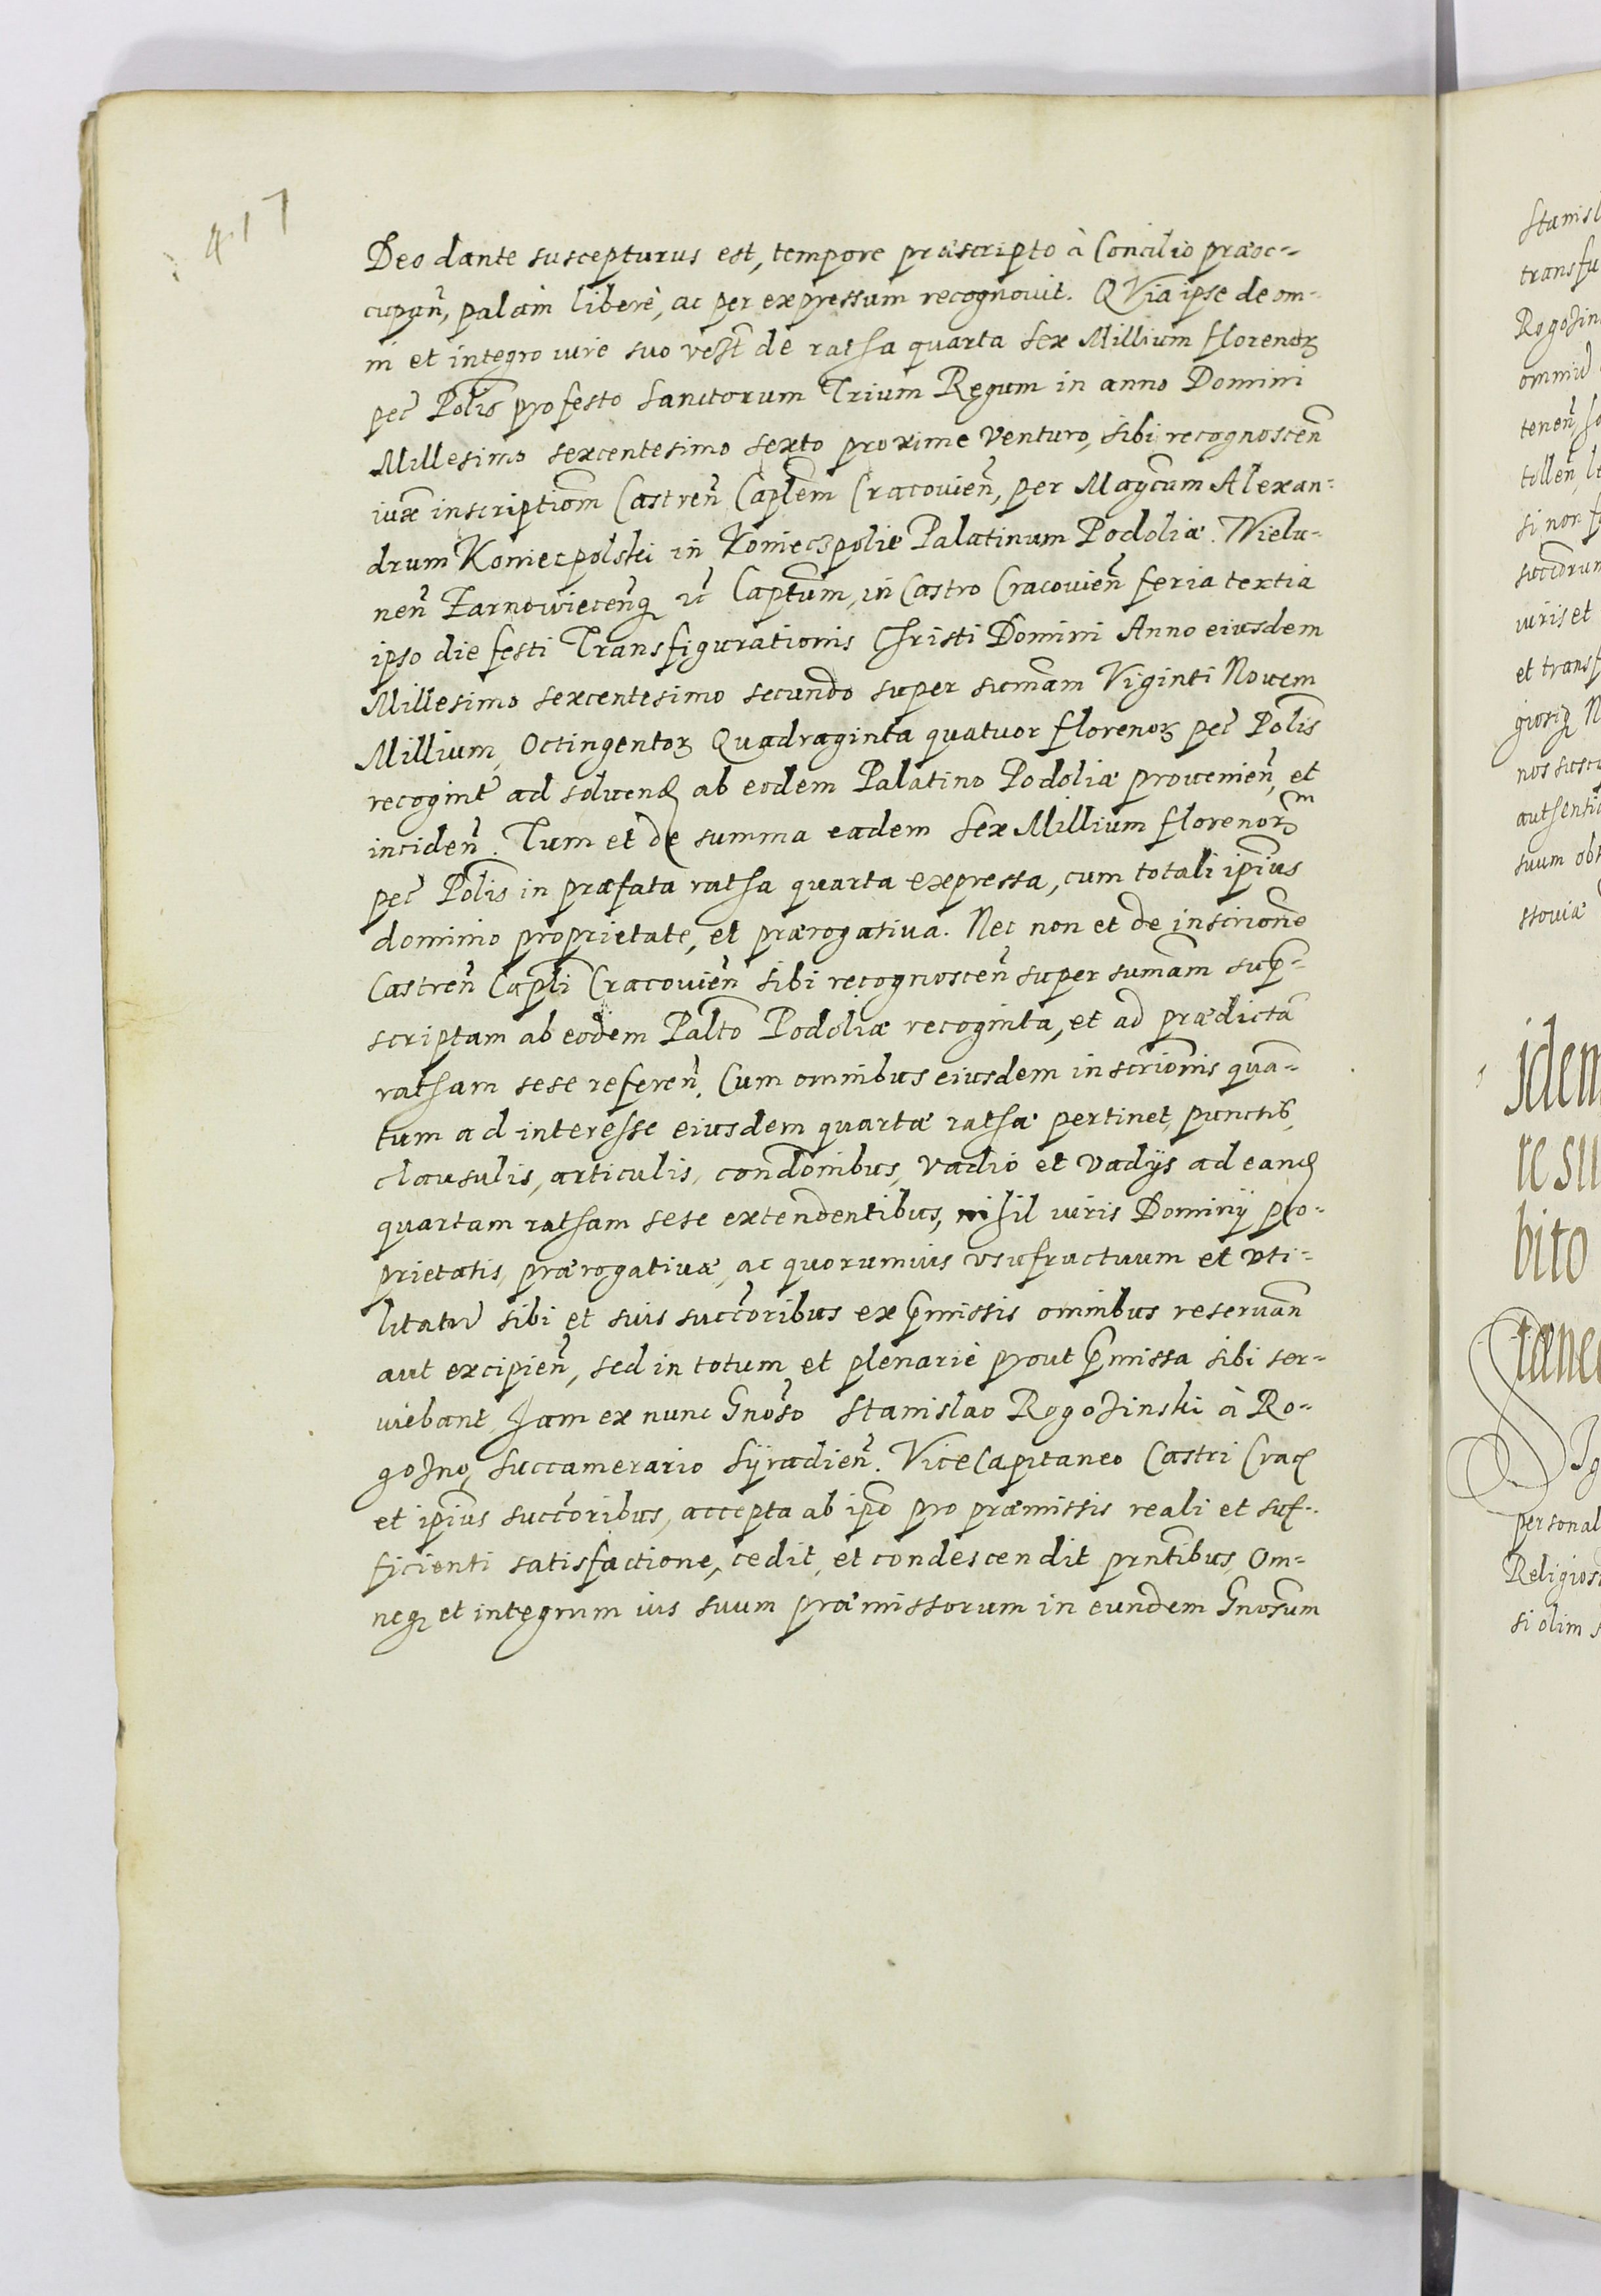 417
Deo dante suscepturus est, tempore præscripto à Concilio præoc-
cupan̄, palàm liberè, ac per expressum recognouit. QVia ipse de om-
ni et integro iure suo vest̄ de ratha quarta Sex Millium Florenoꝝ
pec̄ Polīs pro festo Sanctorum Trium Regum in anno Domini
Millesimo sexcentesimo sexto proxime Venturo, sibi recognoscen̄
iux̄ inscriptiōm Castren̄ Caplem̄ Cracouien̄, per Magc̄um Alexan-
drum Koniecpolski in Koniecspolie Palatinum Podoliæ. Wielu-
nen̄ Tarnowiecen̄q̨ ꝛc̄ Captūm, in Castro Cracouien̄ feria textia
ipso die festi Transfigurationis Christi Domini Anno eiusdem
Millesimo sexcentesimo secundo super sum̄am Viginti Nouem
Millium, Octingentoꝝ Quadraginta quatuor florenoꝝ pec̄ Polīs
recogint̄ ad soluend̨ ab eodem Palatino Podoliæ prouenien̄, et
inciden̄. Tum et de summa eadem Sex Millium florenorm̄
pec̄ Polīs in præfata ratha quarta expressa, cum totali ip̄ius
dominio proprietate, et prærogatiua. Nec non et de inscriōne
Castren̄ Caplī Cracouien̄ sibi recognoscen̄ super sum̄am sup̄-
scriptam ab eodem Paltō Podoliæ recoginta, et ad prædictā
ratham sese referen̄. Cum omnibus eiusdem inscriōnis quā-
tum ad interesse eiusdem quartæ rathæ pertinet, punctis,
clausulis, articulis, condōnibus, vadio et vadijs ad eand̨
quartam ratham sese extendentibus, nihil iuris Dominij pro-
prietatis, prærogatiuæ, ac quorumuis vsufructuum et vti-
litatū sibi et suis succ̄oribus ex p̄missis omnibus reseruan̄
aut excipien̄, sed in totum et plenariè prout p̄missa sibi ser-
uiebant Jam ex nunc Gnōso Stanislao Rogozinski à Ro-
gozno, Succamerario Syradien̄. ViceCapitaneo Castri Crac̨
et ip̄ius succ̄oribus, accepta ab ip̄o pro præmissis reali et suf-
ficienti satisfactione, cedit, et condescendit prn̄tibus, Om-
neq̨ et integrum ius suum præmissorum in eundem Gnosūm
Stanisl
transfu
Rogozin
omniū
tenen̄, so
tollen̄, le
si non fe
succōrum
iuris et
et transf
giosiq̨ N
nos susce
authentic
suum obt
stouiæ
Idem
re su
bito
tane
Ig
personal
Religios
si olim s